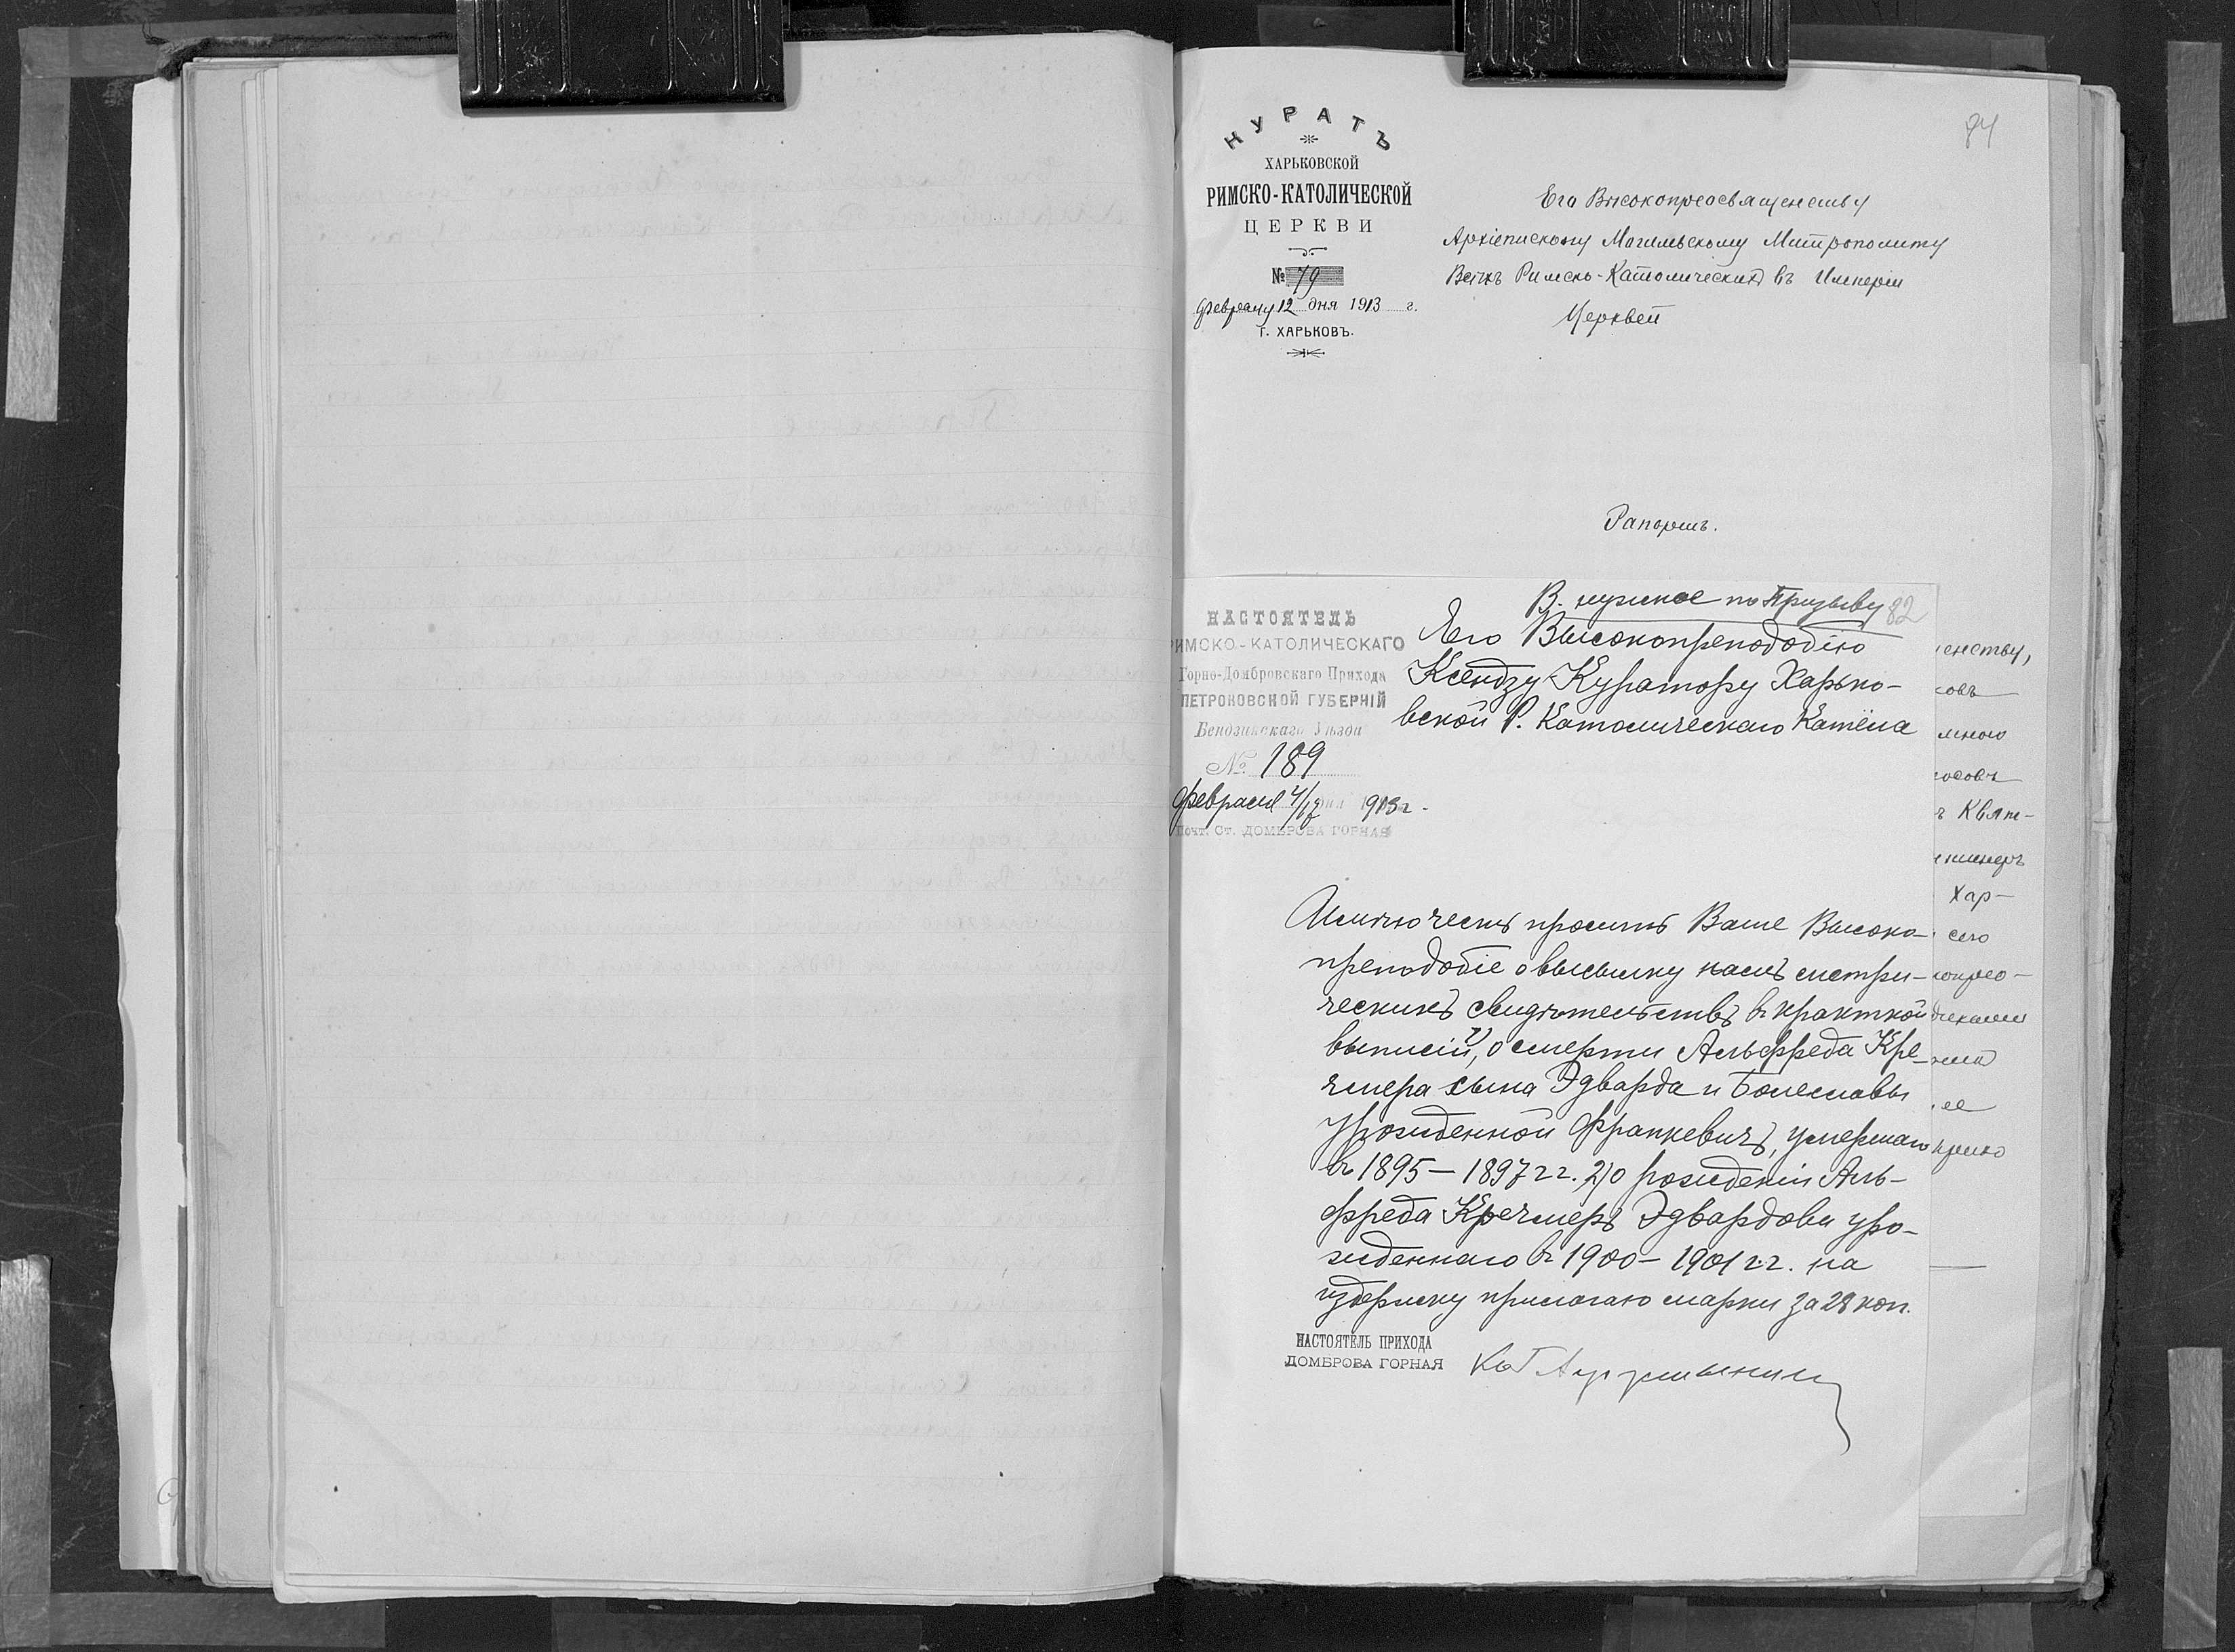 84
КУРАТЪ
ХАРЬКОВСКОЙ
РИМСКО-КАТОЛИЧЕСКОЙ
ЦЕРКВИ
№ 79
12 дня 1913 г.
Г. ХАРЬКОВЪ.
Его Высокопреосвященству
Архіепископу Митрополиту
Всѣхъ Римско-Католическихъ въ Имперіи
Церквей
Рапортъ.
В. нужное по Призыву 82
НАСТОЯТЕЛЬ
РИМСКО-КАТОЛИЧЕСКАГО
Горно-Домбровскаго Прихода
ПЕТРОКОВСКОЙ ГУБЕРНІЙ
Бендинскаго Уѣзда
№ 189
Февраля 4/17 дня 1913 г.
Почт. Ст. ДОМБРОВА ГОРНАЯ
Его Высокопреподобію
Ксендзу Куратору Харько-
вской Р. Католическаго
просить Ваше Высоко-
преподобіе о высылку намъ метри-
ческихъ свидѣтельствъ въ краткой
выписи 1), о смерти Альфреда Кре-
чмера сына Эдварда и Болеславы
урожденной Франкевичъ, умершаго
въ 1895 — 1897 гг. 2) о рожденіи Аль-
фреда Кречмеръ Эдвардова уро-
жденнаго въ 1900 – 1901 гг. на
издержку прилагаю марки за 28 коп.
НАСТОЯТЕЛЬ ПРИХОДА
ДОМБРОВА ГОРНАЯ
енству,
мною
ъ Квят-
Хар-
его